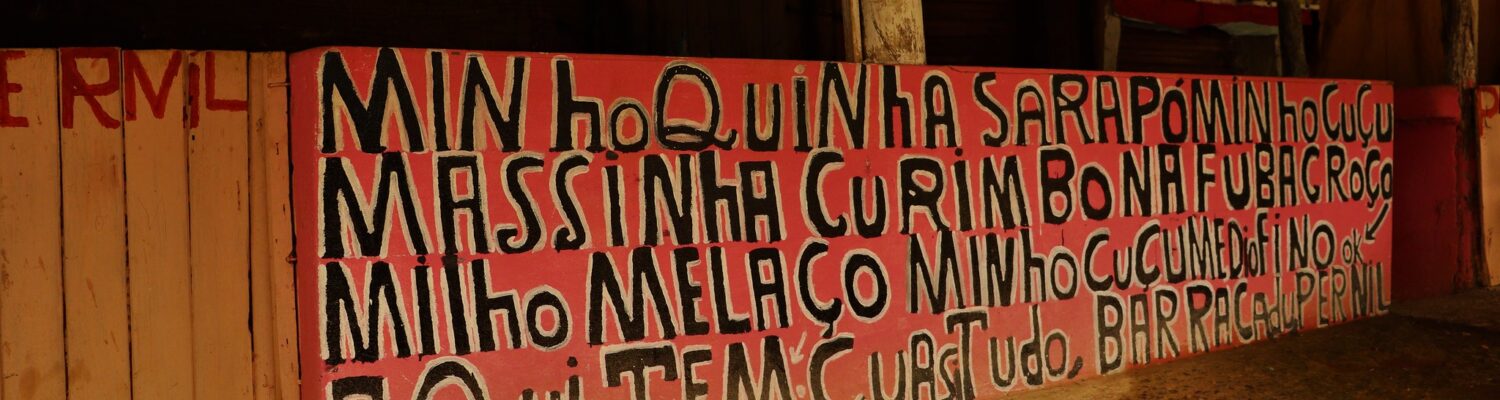 ERNiL
MiNhoQuiNhA SARAPÓ MiNhoCuÇu
MASSiNhA CuRiMBONA FuBAGROÇO
MilhO MELAÇO MiNhoCuÇuMEDioFiNO ok
TEM: CuASiTudo, BARRACAduPERNIL